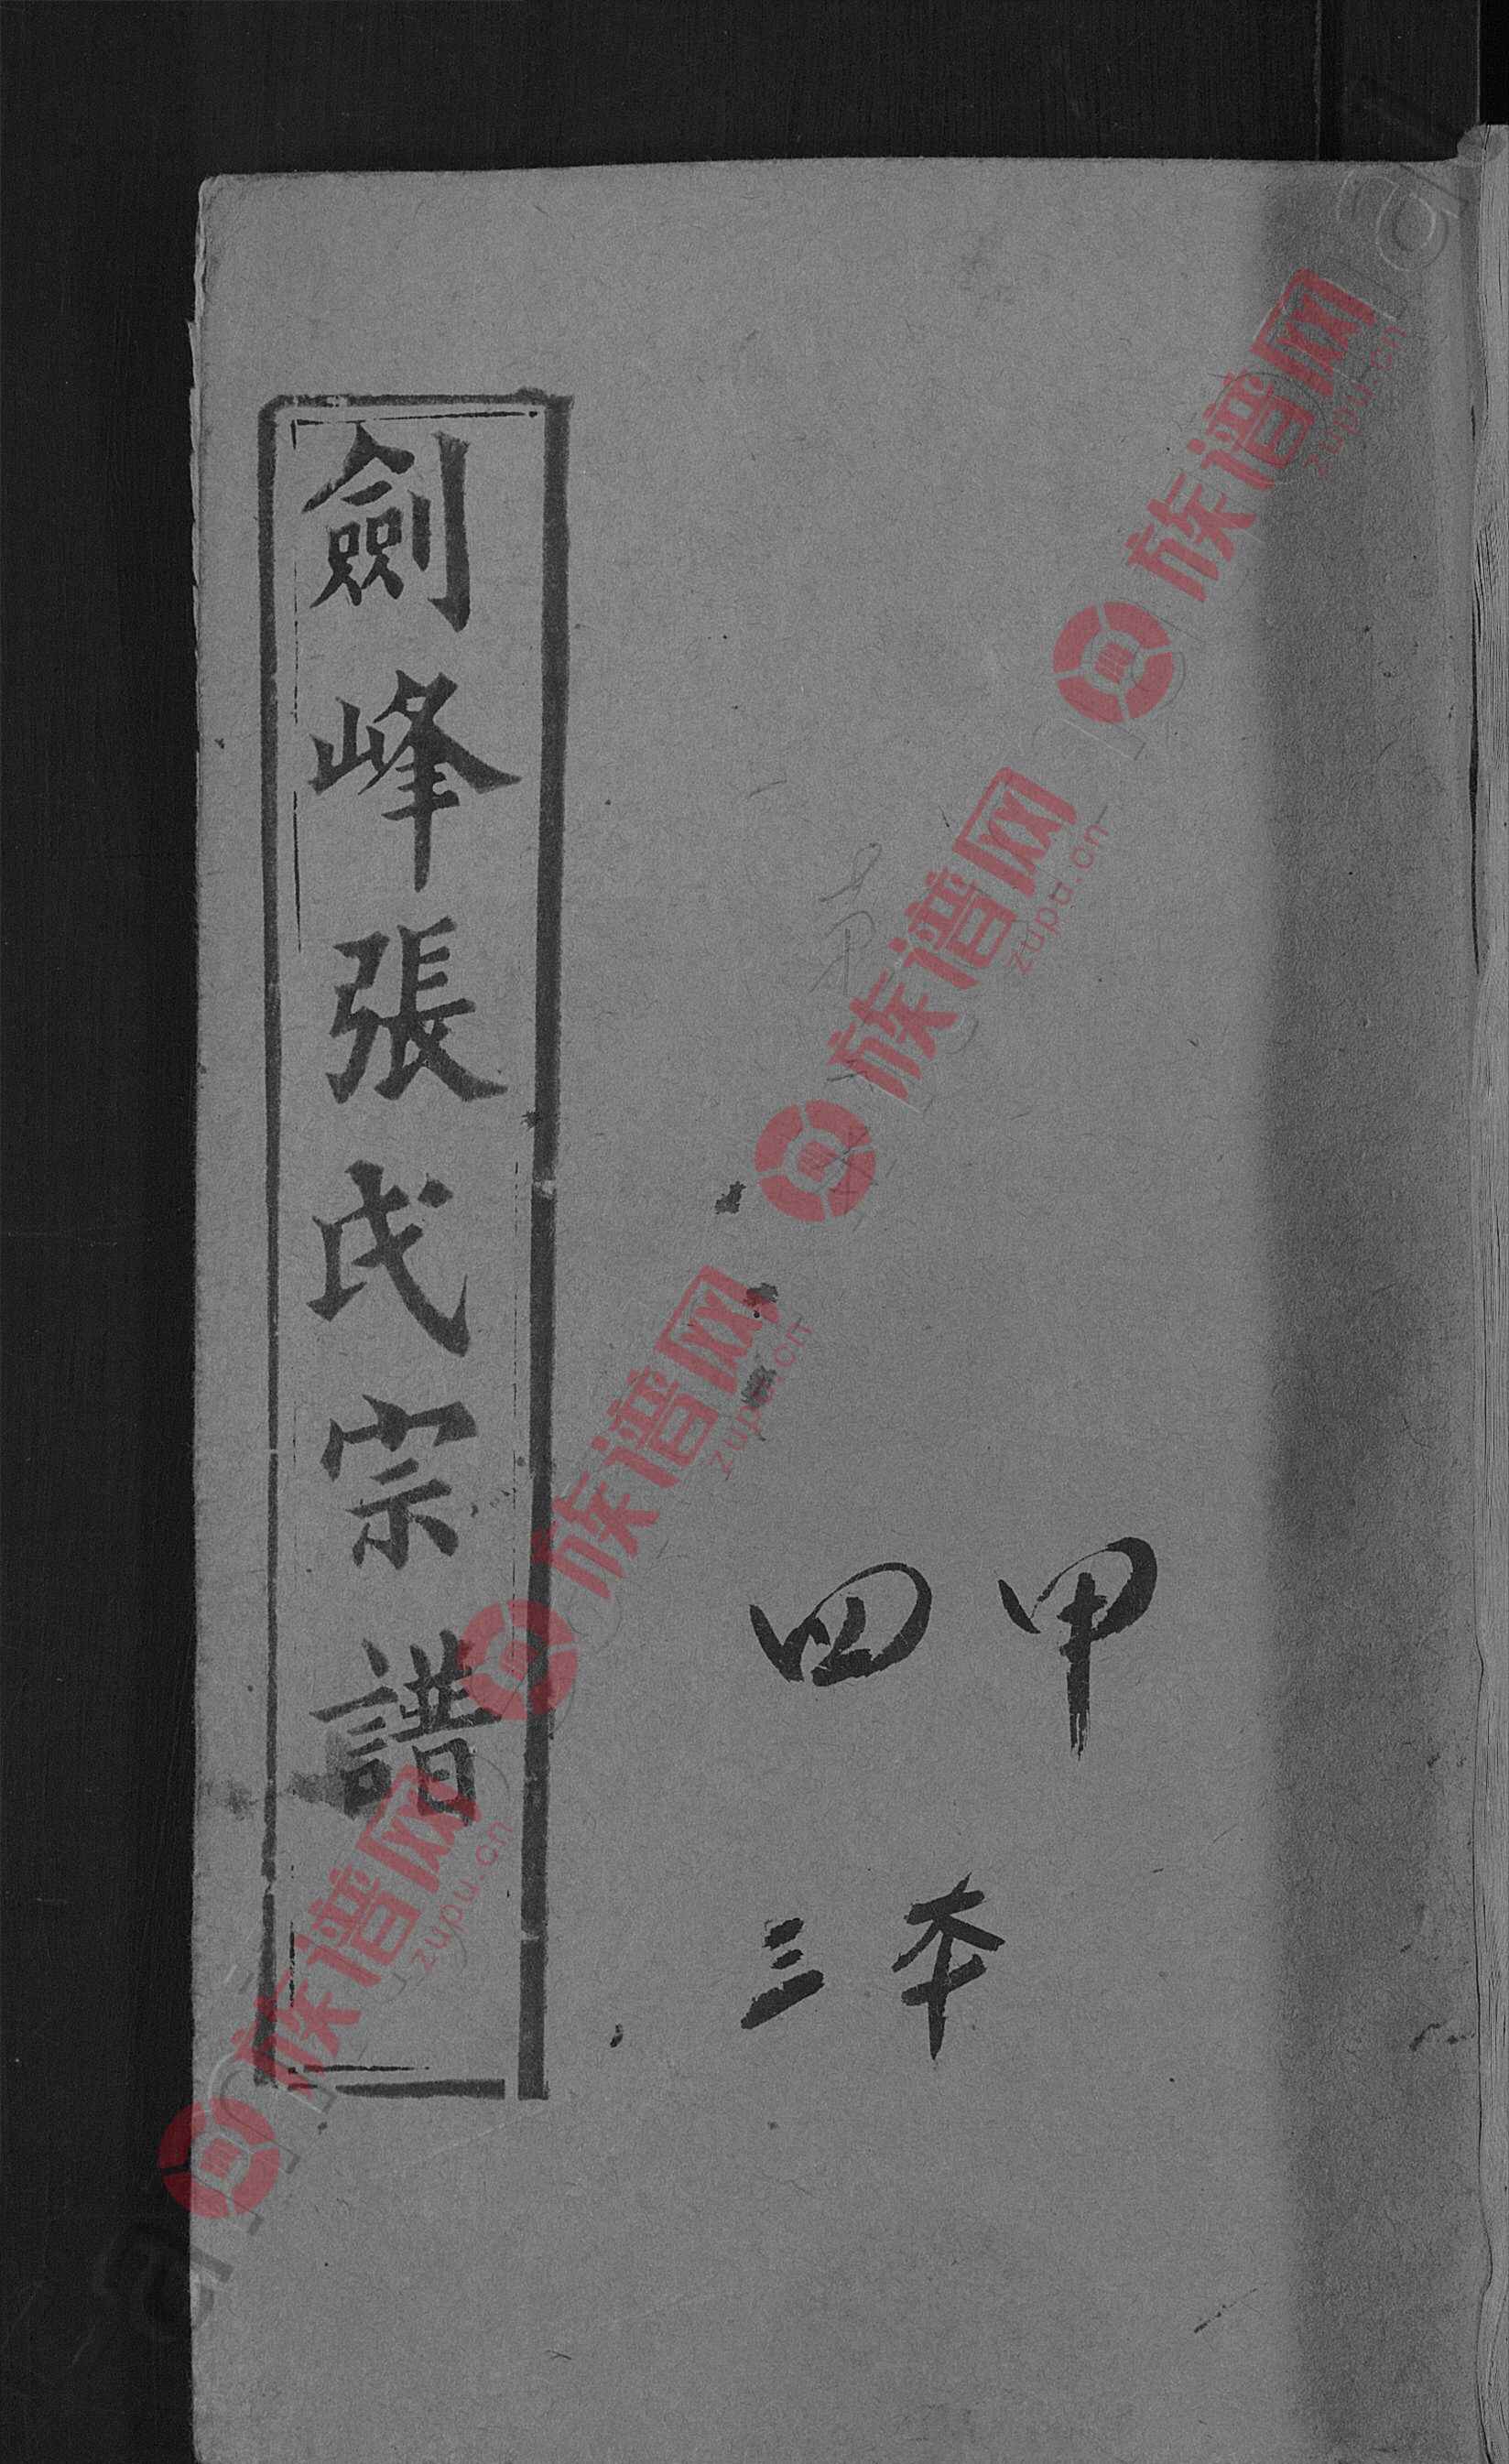 甲
本
四
三
劍峰張氏宗譜
族谱网
zupu.cn
族谱网
zupu.cn
族谱网
zupu.cn
族谱网
zupu.cn